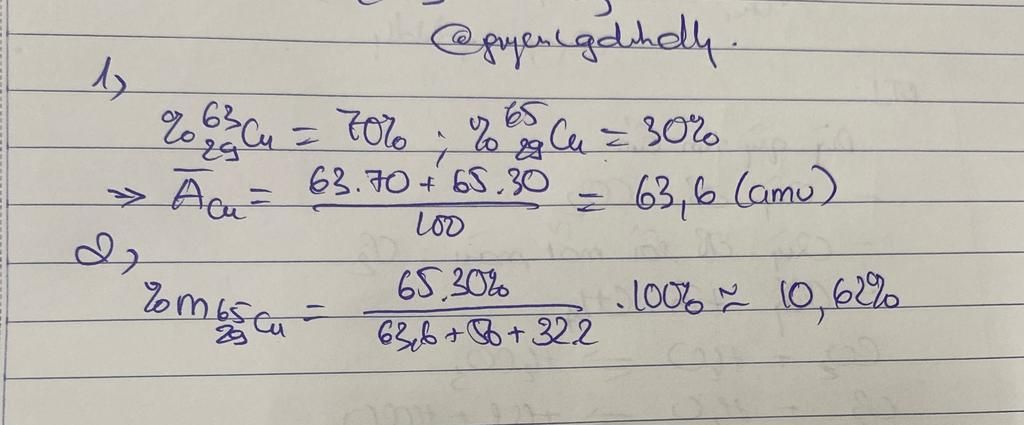 1,
%⁶³₂₉Cu = 70% ; %⁶⁵₂₉Cu = 30%
=> A̅Cu = (63.70 + 65.30)/100 = 63,6 (amu)
2,
%m⁶⁵₂₉Cu = 65.30%/(63,6 + 56 + 32.2) .100% ≈ 10,62%